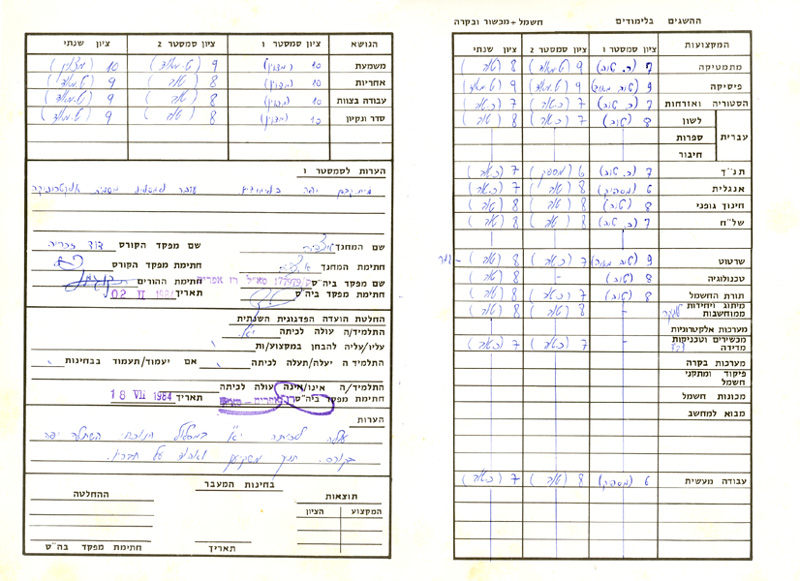 ההשגים בלימודים חשמל + מכשור ובקרה
המקצועות ציון סמסטר 1 ציון סמסטר 2 ציון שנתי
מתמטיקה 7 (כ. טוב) 9 (ט.מאד) 8 (טוב)
פיסיקה 9 (טוב מאד) 9 (ט.מאד) 9 (ט.מאד)
הסטוריה ואזרחות 7 (כ. טוב) 7 (כ.טוב) 7 (כ.טוב)
עברית
לשון 8 (טוב) 8 (טוב) 8 (טוב)
ספרות
חיבור
תנ״ך 7 (כ. טוב) 6 (מספק) 7 (כ.טוב)
אנגלית 6 (מספיק) 8 (טוב) 7 (כ.טוב)
חינוך גופני 8 (טוב) 8 (טוב) 8 (טוב)
של״ח 7 (כ. טוב) 8 (טוב) 8 (טוב)
שרטוט 9 (טוב מאד) 7 (כ.טוב) 8 (טוב)
טכנולוגיה 8 (טוב) - 8 (טוב)
תורת החשמל 8 (טוב) 7 (כ.טוב) 8 (טוב)
מיתוג ויחידות ממוחשבות - 8 (טוב) 8 (טוב)
מערכות אלקטרוניות
מכשירים וטכניקות מדידה - 7 (כ.טוב) 7 (כ.טוב)
מערכות בקרה
פיקוד ומתקני חשמל
מכונות חשמל
מבוא למחשב
עבודה מעשית 6 (מספיק) 8 (טוב) 7 (כ.טוב)
הנושא ציון סמסטר 1 ציון סמסטר 2 ציון שנתי
משמעת 10 (מצוין) 9 (ט.מאד) 10 (מצוין)
אחריות 10 (מצוין) 8 (טוב) 9 (ט.מאד)
עבודה בצוות 10 (מצוין) 8 (טוב) 9 (ט.מאד)
סדר ונקיון 10 (מצוין) 8 (טוב) 9 (ט.מאד)
הערות לסמסטר 1
יפה בלימודים עובר למסלול אלקטרוניקה
שם המחנך שם מפקד הקורס דוד זכריה
חתימת המחנך חתימת מפקד הקורס
שם מפקד ביה״ס רז אפריה חתימת ההורים
חתימת מפקד ביה״ס תאריך 02 II
החלטת הועדה הפדגוגית השנתית
התלמיד/ה עולה לכיתה יא'
עליו/עליה להבחן במקצוע/ות
התלמיד ה יעלה/תעלה לכיתה אם יעמוד/תעמוד בבחינות
התלמיד/ה אינו/אינה עולה לכיתה
חתימת מפקד ביה״ס תאריך 18 VII 1984
הערות
עולה לכיתה יא' במסלול השתלב יפה
בקורס. חברתו.
בחינות המעבר
תוצאות
ההחלטה
המקצוע הציון
תאריך חתימת מפקד בה״ס